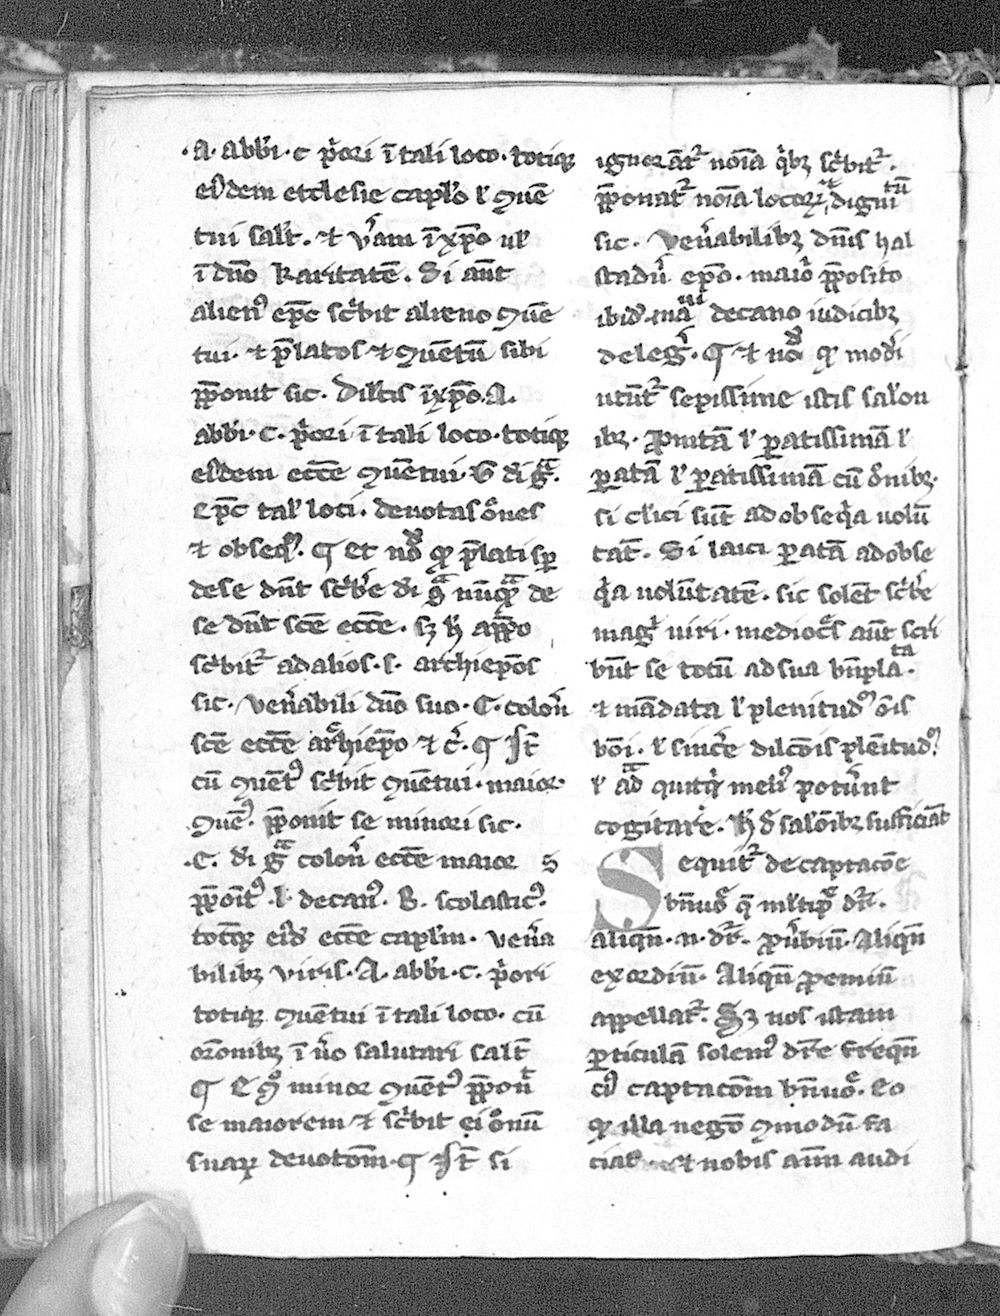 .A. abb̄i .c p̄ori ī tali loco. totiꝙ
eiꝰdem ecclesie capl̄o ł ꝯuē
tui sal̄t. ⁊ v̄am ī xp̄o ul̄
ī dn̄o karitatē. Si aūt
alienꝰ ep̄c sc̄bit alieno ꝯuē
tui. ⁊ p̄latos ⁊ ꝯuētū sibi
p̄ponit sic. Dil̄tis ī xp̄o .A.
abb̄i .c. p̄ori ī tali loco. totiꝙ
eiꝰdem ecc̄e ꝯuētui .G. di gͣ.
ep̄c tal̄ loci. deuotas oēs
⁊ obseqͦ. ¶ Et noͣ ꝙ p̄lati sꝑ
de se dn̄t sc̄be di gͣ nūqͣ de
se dn̄t sc̄e ecc̄e. sꝫ h̄ ap̄p̄o
sc̄bit̄ ad alios .s. archiep̄os
sic. Ven̄abili dn̄o suo .C. colon̄
sc̄e ecc̄e archiep̄o ⁊ c̄. ¶ It̄
cū ꝯuētꝰ sc̄bit ꝯuētui. maior
ꝯuēꝰ. p̄ponit se minori sic.
.C. di gͣ colon̄ ecc̄e maior
p̄poītꝰ .I. decanꝰ .B. scolasticꝰ.
totꝙ eiꝰd ecc̄e capl̄m. ven̄a
bilibꝫ viris .A. abb̄i .c. p̄ori
totiꝙ ꝯuētui ī tali loco. cū
or̄onibꝫ ī v̄o salutari sal̄t
¶ Et qͦ minor ꝯuētꝰ p̄pon̄
se maiorem ⁊ sc̄bit ei oīnū
suaꝝ deuotōm. ¶ It̄ si
ignorāt̄ noīa qͥbꝫ sc̄bit̄.
p̄ponat̄ noīa locoꝝ ⁊ digni tū
sic. Ven̄abilibꝫ dn̄is hal
stadn̄ ep̄o. maiori p̄posito
ibid. decano iudicibꝫ
deleḡ. ¶ Et noͣ ꝙ modi
utūt̄ sepissime istis salōn
ibꝫ. ꝓmtā ł ꝑatissimā ł
ꝑatā ł ꝑatissimā cū om̄ibꝫ.
si cl̄ici sūt ad obseqͥa uolū
tat̄. Si laici ꝑatā ad obse
qͥa uolūtatē. sic solēt sc̄be
magͥ uiri. mediocs̄ aūt scri
būt se totū ad sua bn̄pla ta.
⁊ mādata ł plenitudꝰ oīs
bōi. ł sinc̄e dilc̄ōis plēitudꝰ
ł qͥd qͥitqͥ meliꝰ pot̄unt
cogitare. H̄ d̄ salōibꝫ sufficiāt
Sequit̄ de captac̄oe
bn̄uoͤ q̄ ml̄tip̄ dr̄.
aliqn̄ .n. dr̄. ꝓu̇biū. Aliqn̄
exordiū. Aliqn̄ ꝓemiū
appellat̄. Sꝫ nos istam
ꝑticulā solemꝰ dr̄e freqn̄
ciꝰ captacōm bn̄uoͤ. Eo
ꝙ illa negō ꝯmodū fa
ciat et nobis aīm audi